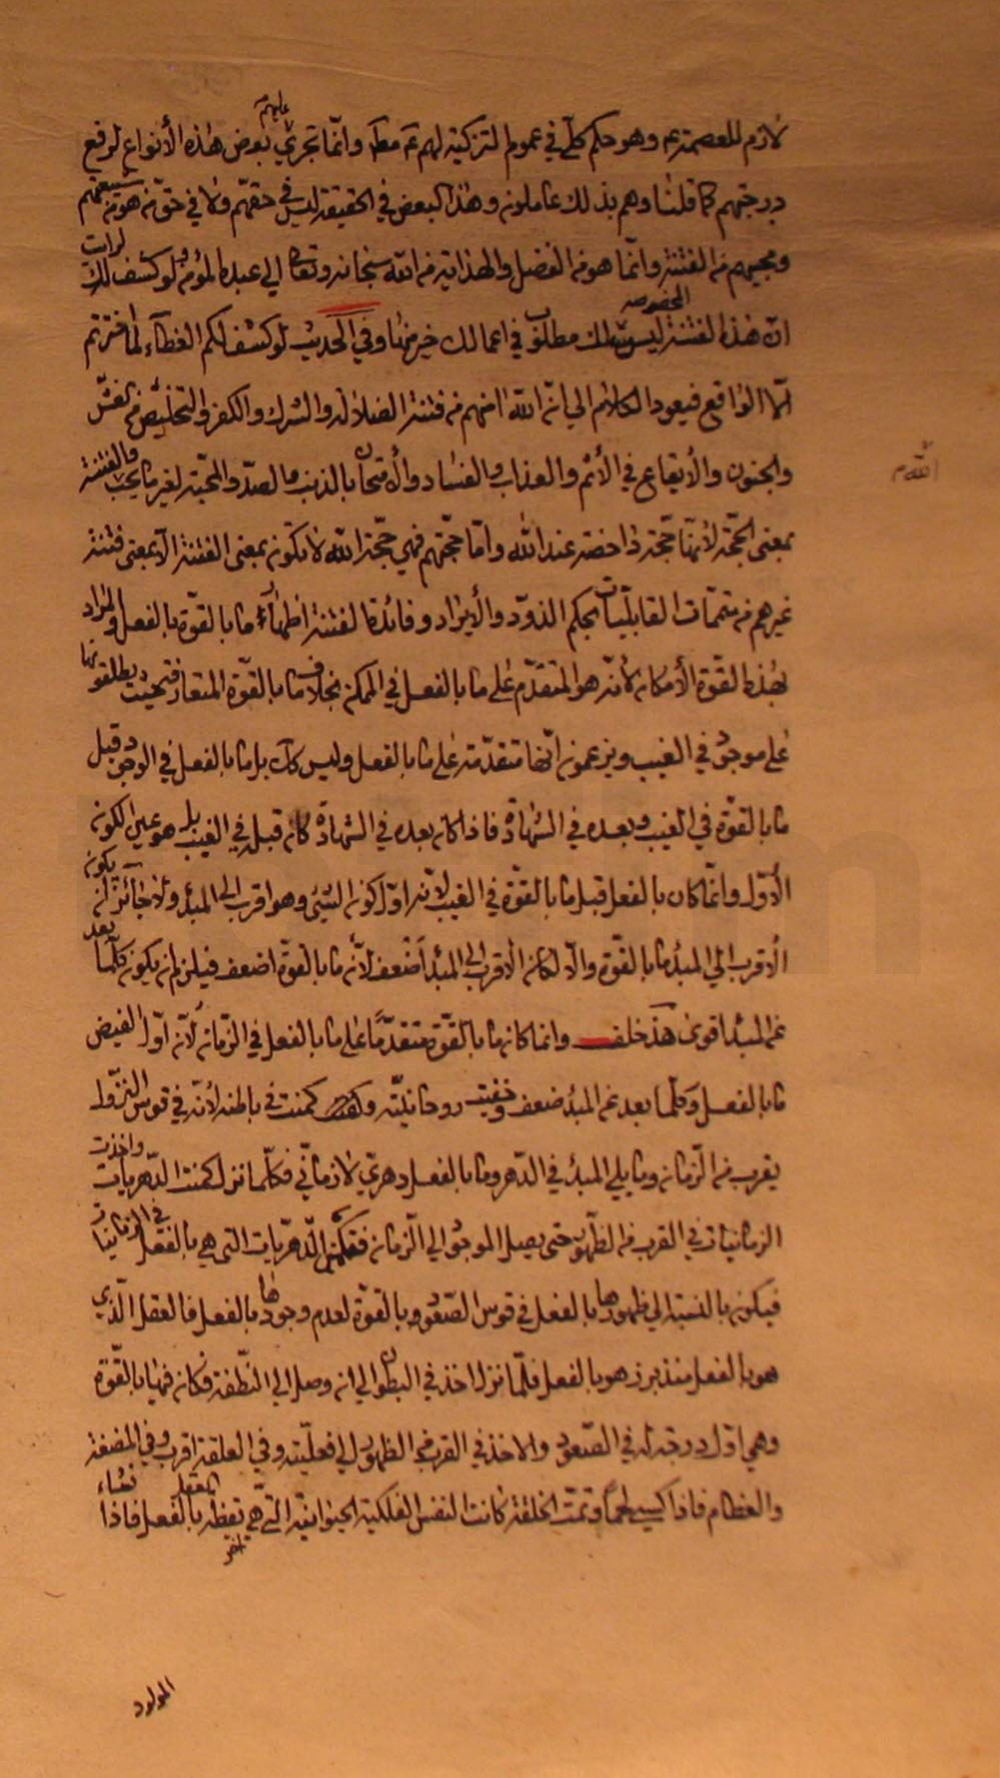 لازم للعصمة وهو حكم كلّي في عموم التزكية لهم وانّما تجري عليهم بعض هذه الأنواع لرفع
درجتهم كما قلنا وهم بذلك عاملون وهذا البعض في الحقيقة ليس في حقّهم ولا في حقّ من هو من شيعتهم
ومحبيهم من الفتنة وانّما هو من الفضل والهداية من الله سبحانه وتعالى الي عبده المؤمن ولو كشف لك لرايت
انّ هذه الفتنة المخصوصة ليس لك مطلوب في اعمالك خير منها وفي الحديث لو كشف لكم الغطآء لما اخترتم
الّا الواقع فيعود الكلام الي انّ الله امنهم من فتنة الضلالة والشرك والكفر والتخليص من الغشّ
والجنون والأيقاع في الأثم والعذاب والفساد والأمتحان بالذنب والصدّ والمحبّة لغير ما يحبّ والفتنة
الله
بمعنى الحجّة لأنها حجّة داحضة عند الله وامّا حجّتهم فهي حجّة الله لا تكون بمعنى الفتنة الّا بمعنى فتنة
غيرهم من متممات القابليات بحكم الذود والأيراد وفائدة الفتنة اظهار ما بالقوّة بالفعل والمراد
بهذه القوّة الأمكان لأنّه هو المتقدّم على ما بالفعل في الممكن بخلاف ما بالقوّة المتعارفة حيث يطلقونها
على موجود في الغيب ويزعمون انّها متقدّمة على ما بالفعل وليس كك بل ما بالفعل في الوجود قبل
ما بالقوّة في الغيب وبعده في الشهادة فاذا كان بعده في الشهادة كان قبل في الغيب بل هو عين الكون
الأوّل وانّما كان بالفعل قبل ما بالقوّة في الغيب لأنّه اوّل كون الشيئ وهو اقرب الي المبدء ولا جائز ان يكون
الأقرب الي المبدء ما بالقوّة والّا لكان الأقرب الي المبدء اضعف لأنّه ما بالقوّة اضعف فيلزم ان يكون كلّما بعد
عن المبدء اقوى هذا خلف وانما كان ما بالقوّة متقدّما على ما بالفعل في الزمان لأنّه اوّل الفيض
ما بالفعل وكلّما بعد عن المبدء ضعف وخفيت روحانيّته وكمنت في باطنه لأنّه في قوس النزول
يقرب من الزمان وما يلي المبدء في الدهر وما بالفعل دهريّ لا زمانّي فكلّما نزل كمنت الدّهريات واخذت
الزمانيات في القرب من الظهور حتى يصل الموجود الي الزمان فتكمن الدّهريات التي هي بالفعل في الزمانيات
فيكون بالنسبة الي ظهورها بالفعل في قوس الصّعود بالقوّة لعدم وجودها بالفعل فالعقل الّذي
هو بالفعل منذ برز هو بالفعل فلمّا نزل اخذ في البطون الي ان وصل الي النطفة فكان فيها بالقوّة
وهي اوّل درجة له في الصّعود والاخذ في القرب من الظهور الي فعليّته وفي العلقة اقرب وفي المضغة
والعظام فاذا كسي لحمًا وتمّت الخلقة كانت النفس الفلكية الحيوانية الّتي هي نقطة بالفعل فاذا
المولود